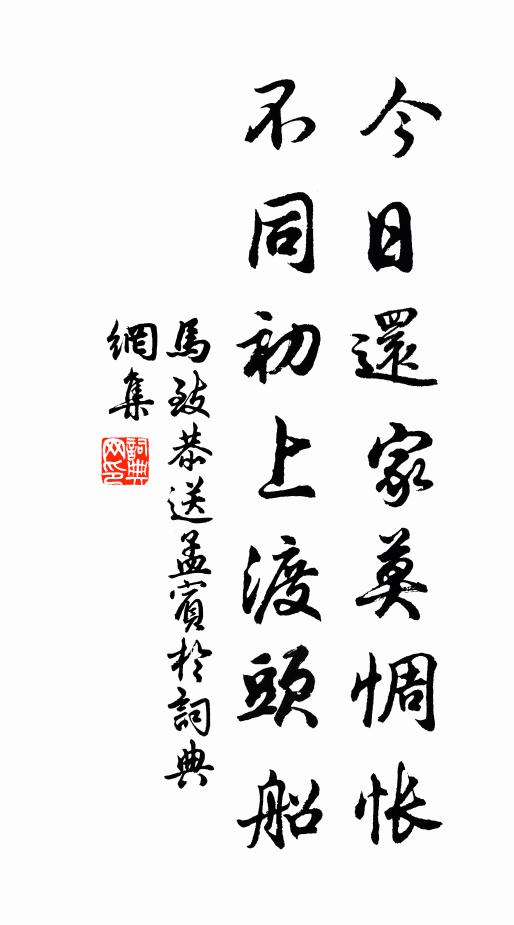 今日還家莫惆悵
不同初上渡頭船
馬致恭送孟賓於詞典
網集
詞典網印